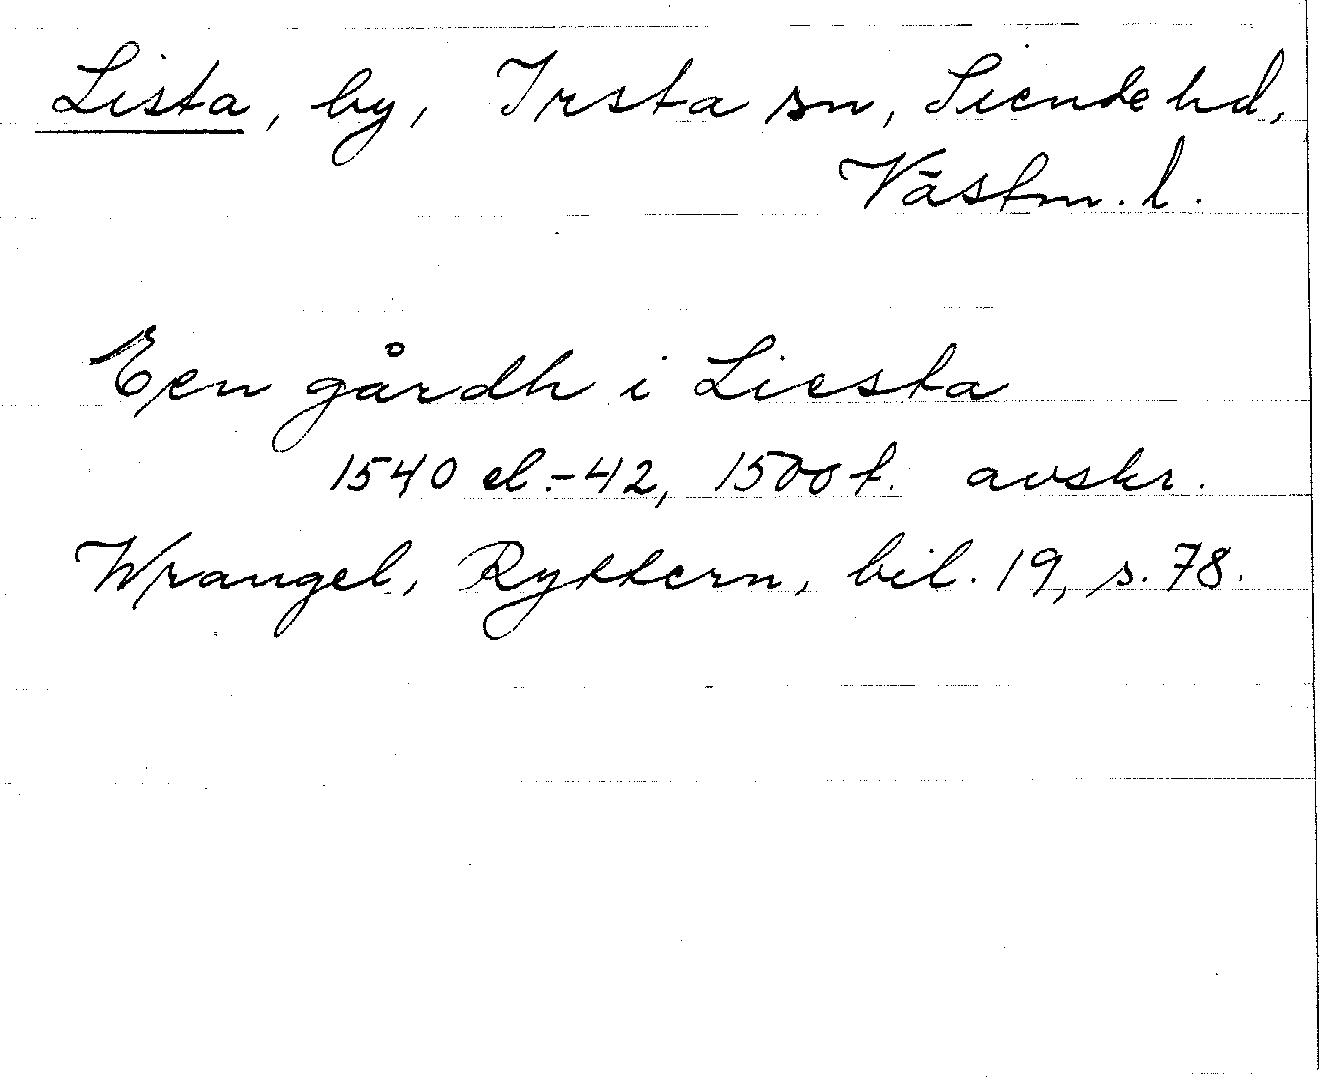 Lista, by, Irsta sn, Siende hd,
Västm. l.
Een gårdh i Liesta
1540 el.-42, 1500t. avskr.
Wrangel, Ryttern, bil. 19, s. 78.